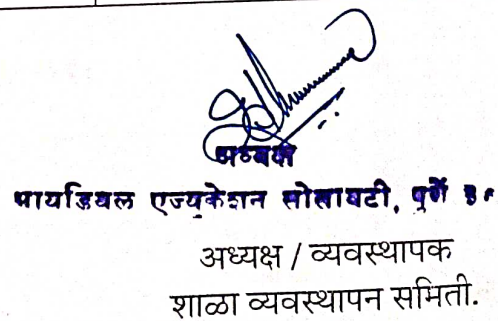 अध्यक्ष
पायोनियल एज्युकेशन सोसायटी, पुणे
अध्यक्ष / व्यवस्थापक
शाळा व्यवस्थापन समिती.